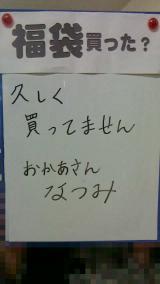 福袋買った？
久しく
買ってません
おかあさん
なつみ